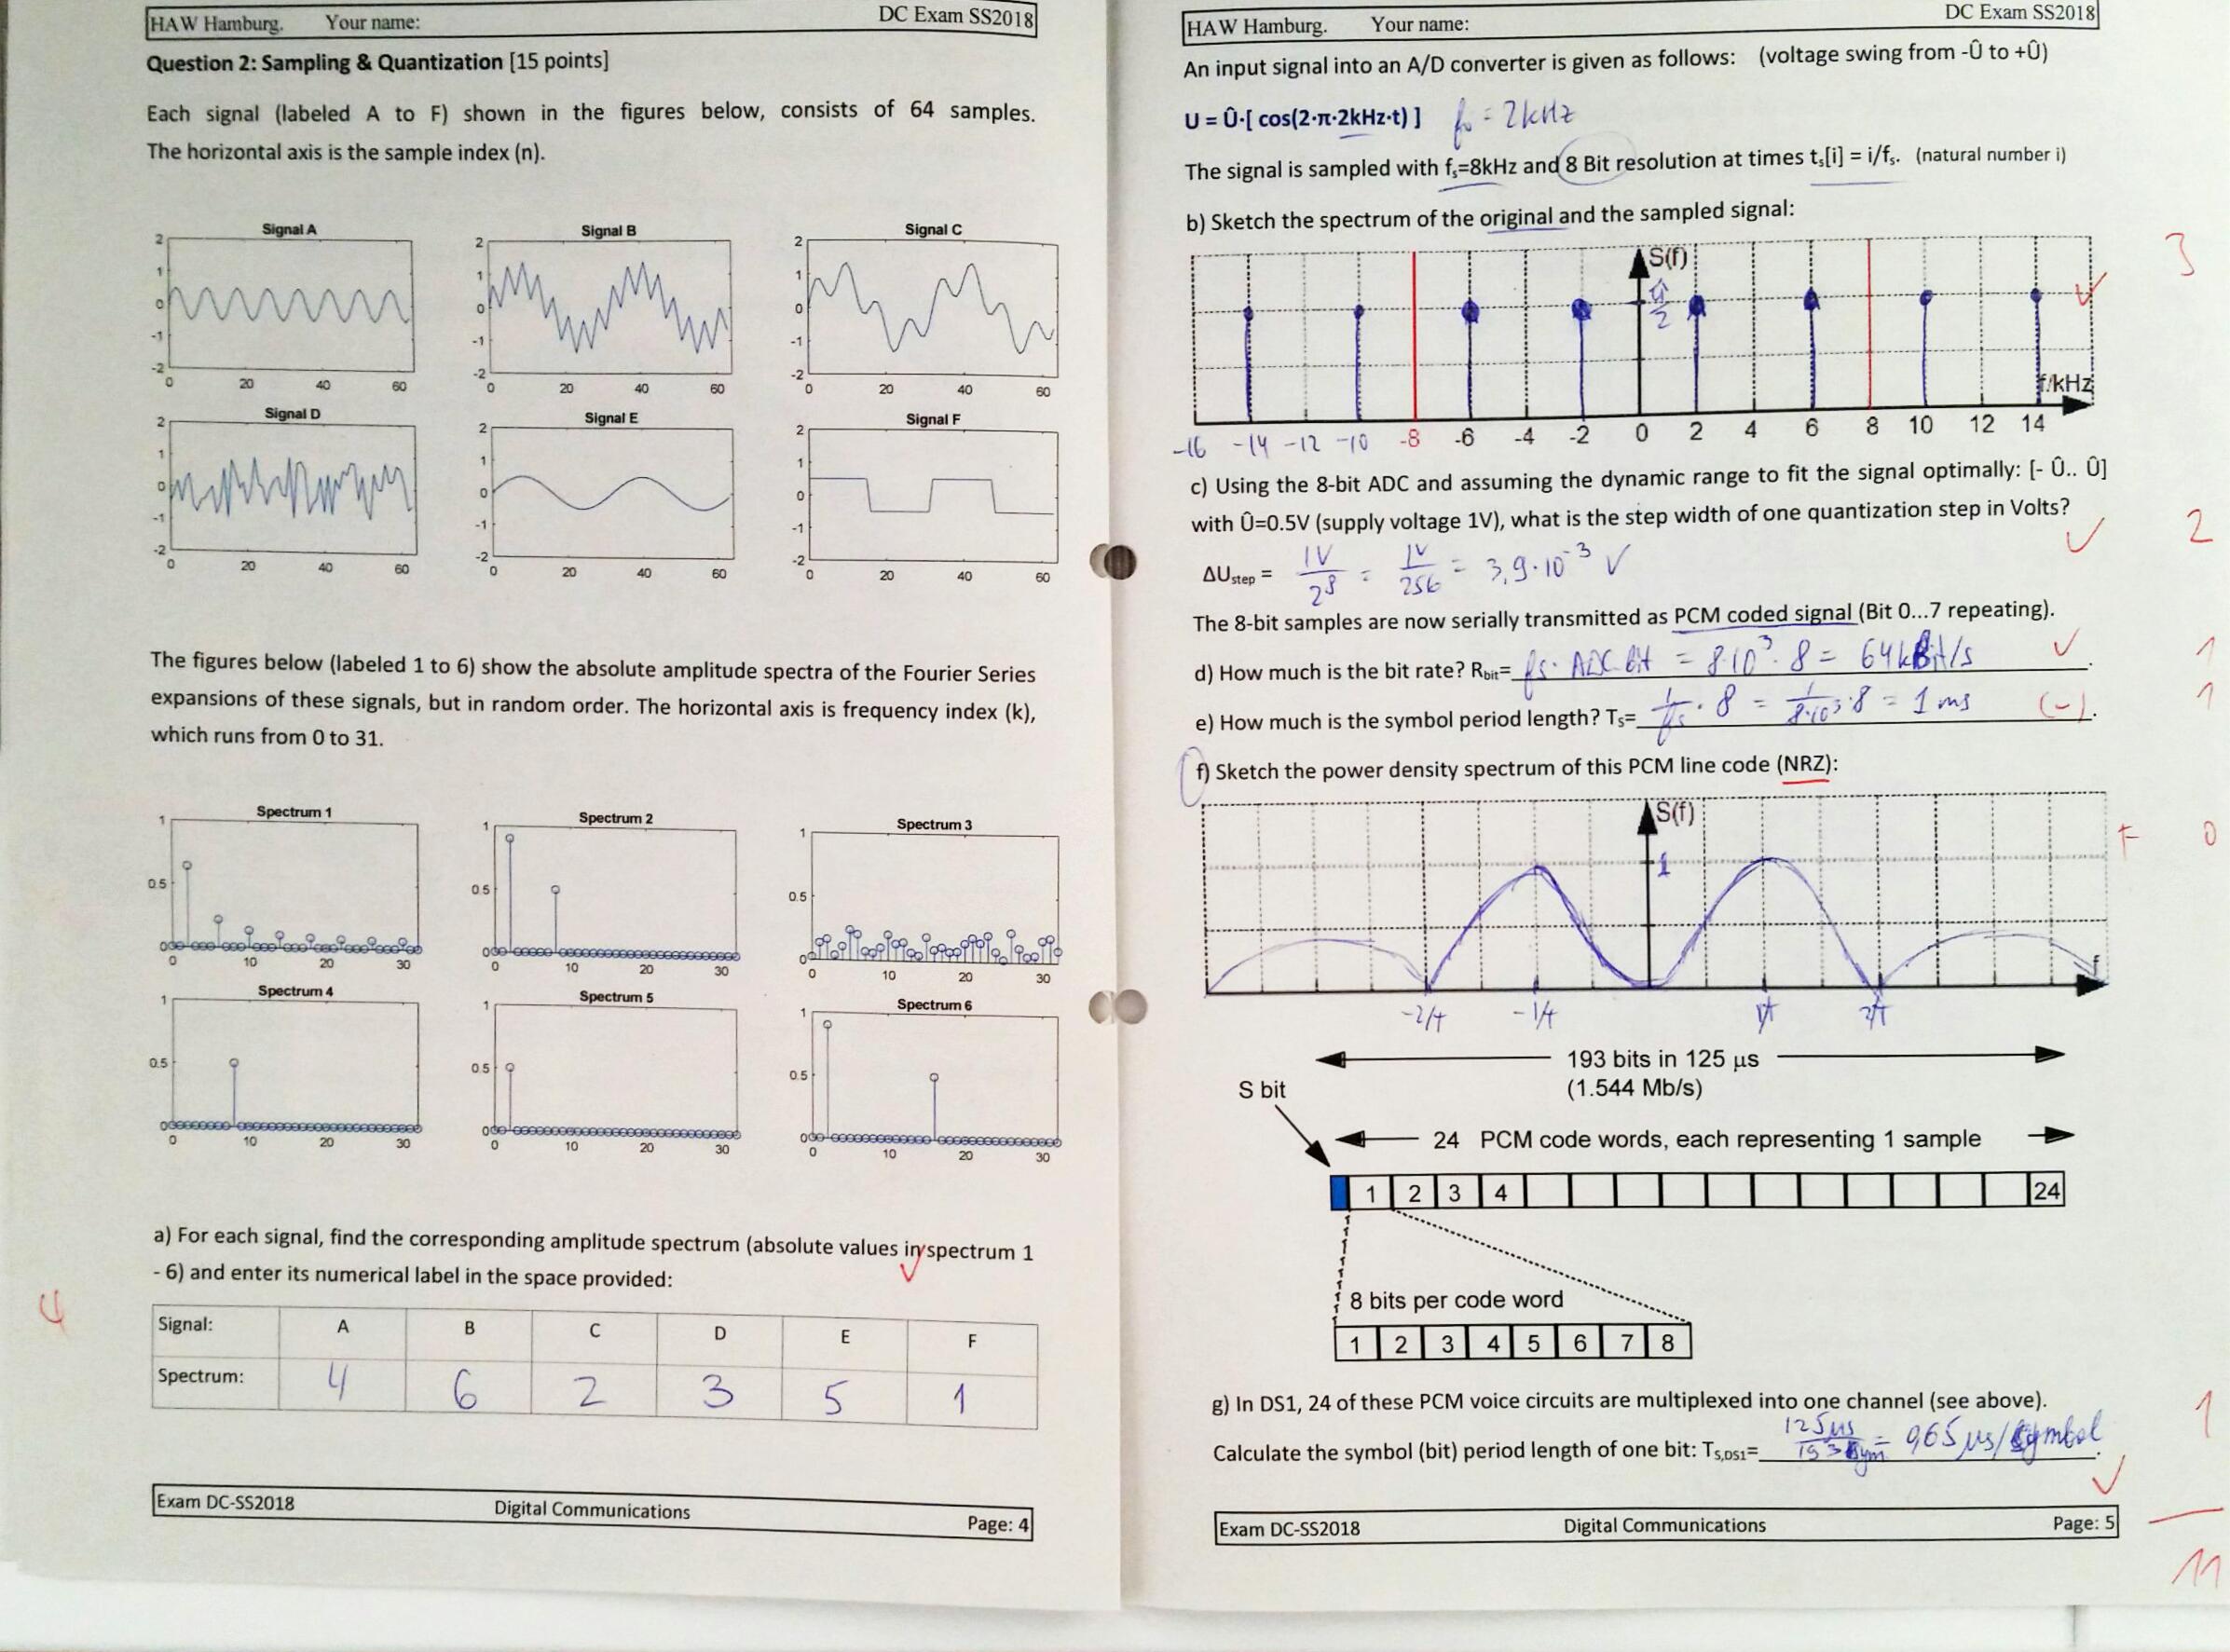 HAW Hamburg. Your name: DC Exam SS2018
Question 2: Sampling & Quantization [15 points]
Each signal (labeled A to F) shown in the figures below, consists of 64 samples.
The horizontal axis is the sample index (n).
Signal A Signal B Signal C
2 1 0 -1 -2 2 1 0 -1 -2 2 1 0 -1 -2
0 20 40 60 0 20 40 60 0 20 40 60
Signal D Signal E Signal F
2 1 0 -1 -2 2 1 0 -1 -2 2 1 0 -1 -2
0 20 40 60 0 20 40 60 0 20 40 60
The figures below (labeled 1 to 6) show the absolute amplitude spectra of the Fourier Series
expansions of these signals, but in random order. The horizontal axis is frequency index (k),
which runs from 0 to 31.
Spectrum 1 Spectrum 2 Spectrum 3
1 0.5 0 1 0.5 0 1 0.5 0
0 10 20 30 0 10 20 30 0 10 20 30
Spectrum 4 Spectrum 5 Spectrum 6
1 0.5 0 1 0.5 0 1 0.5 0
0 10 20 30 0 10 20 30 0 10 20 30
a) For each signal, find the corresponding amplitude spectrum (absolute values in spectrum 1
- 6) and enter its numerical label in the space provided:
4
Signal: A B C D E F
Spectrum: 4 6 2 3 5 1
Exam DC-SS2018 Digital Communications Page: 4
HAW Hamburg. Your name: DC Exam SS2018
An input signal into an A/D converter is given as follows: (voltage swing from -Û to +Û)
U = Û·[ cos(2·π·2kHz·t) ] f₀ = 2kHz
The signal is sampled with fs=8kHz and 8 Bit resolution at times ts[i] = i/fs. (natural number i)
b) Sketch the spectrum of the original and the sampled signal:
3
S(f)
Û/2
f/kHz
-16 -14 -12 -10 -8 -6 -4 -2 0 2 4 6 8 10 12 14
c) Using the 8-bit ADC and assuming the dynamic range to fit the signal optimally: [- Û.. Û]
with Û=0.5V (supply voltage 1V), what is the step width of one quantization step in Volts?
2
ΔUstep = 1V/2⁸ = 1V/256 = 3,9·10⁻³ V
The 8-bit samples are now serially transmitted as PCM coded signal (Bit 0...7 repeating).
d) How much is the bit rate? Rbit= fs · ADC Bit = 8·10³ · 8 = 64kBit/s. 1
e) How much is the symbol period length? Ts= 1/fs · 8 = 1/8·10³ · 8 = 1 ms (-). 1
f) Sketch the power density spectrum of this PCM line code (NRZ):
S(f)
1
F 0
f
-2/T -1/T 1/T 2/T
193 bits in 125 µs
(1.544 Mb/s)
S bit
24 PCM code words, each representing 1 sample
1 2 3 4 24
8 bits per code word
1 2 3 4 5 6 7 8
g) In DS1, 24 of these PCM voice circuits are multiplexed into one channel (see above).
1
Calculate the symbol (bit) period length of one bit: Ts,DS1= 125µs/193 Sym = 0,65 µs/Symbol.
Exam DC-SS2018 Digital Communications Page: 5
11